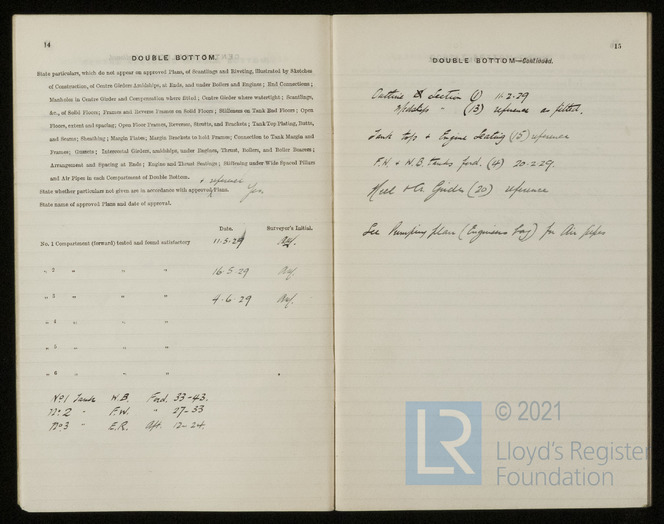 14
DOUBLE BOTTOM.
State particulars, which do not appear on approved Plans, of Scantlings and Riveting, illustrated by Sketches
of Construction, of Centre Girders Amidships, at Ends, and under Boilers and Engines; End Connections;
Manholes in Centre Girder and Compensation where fitted; Centre Girder where watertight; Scantlings,
&c., of Solid Floors; Frames and Reverse Frames on Solid Floors; Stiffeners on Tank End Floors; Open
Floors, extent and spacing; Open Floor Frames, Reverses, Struts, and Brackets; Tank Top Plating, Butts,
and Seams; Sheathing; Margin Plates; Margin Brackets to hold Frames; Connection to Tank Margin and
Frames; Gussets; Intercostal Girders, amidships, under Engines, Thrust, Boilers, and Boiler Bearers;
Arrangement and Spacing at Ends; Engine and Thrust Seatings; Stiffening under Wide Spaced Pillars
and Air Pipes in each Compartment of Double Bottom.
+ reference
State whether particulars not given are in accordance with approved Plans. Yes
State name of approved Plans and date of approval.
Date. Surveyor's Initial.
No. 1 Compartment (forward) tested and found satisfactory 11.5.29
„ 2 „ „ „ 16.5.29
„ 3 „ „ „ 4.6.29
„ 4 „ „ „
„ 5 „ „ „
„ 6 „ „ „
No 1 Tank W.B. Ford. 33-43.
No 2 - F.W. " 27-33
No 3 - E.R. Aft. 12-24.
15
DOUBLE BOTTOM—Continued.
Section (1) 11.2.29
Midships - (13) reference as fitted.
Tank top + Engine Seating (5) reference
F.W. & W.B. Tanks ford. (4) 20.2.29.
Keel & Gr Girder (20) reference
See Pumping plan (Engineers Log) for Air pipes
LR
© 2021
Lloyd's Register
Foundation